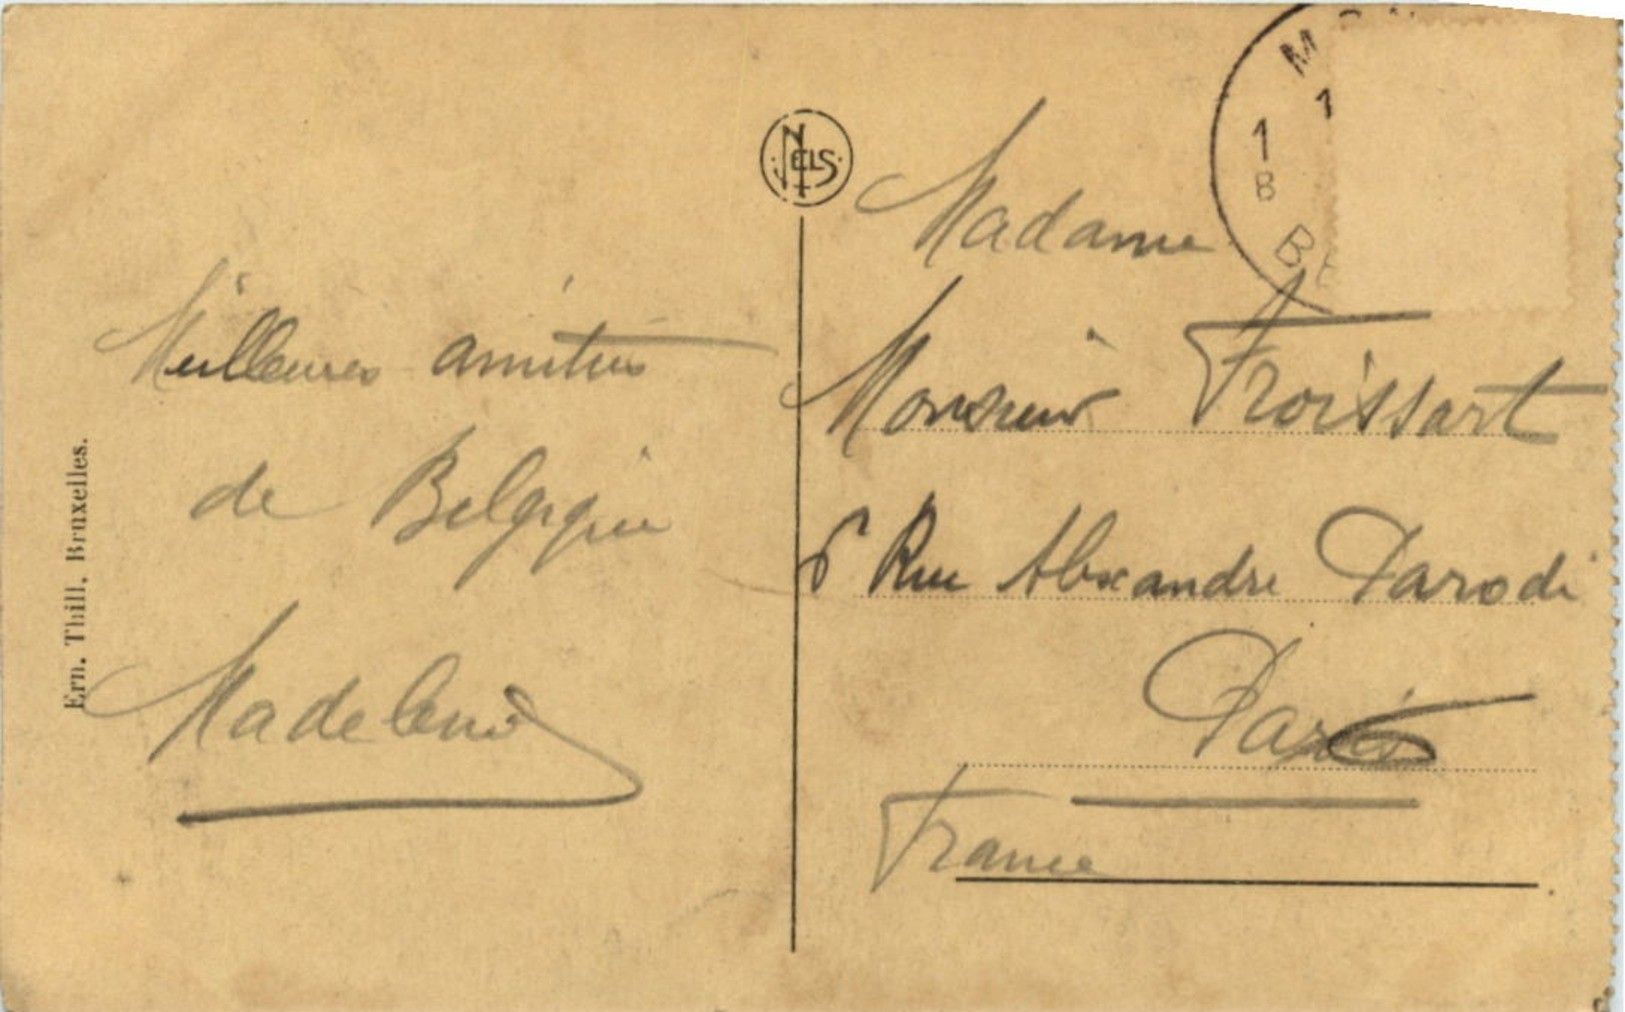 Meilleures amitiés
de Belgique
Madeleine
Ern. Thill, Bruxelles.
NELS
Madame
Monsieur Froissart
6 Rue Alexandre Parodi
Paris
France
M
1
1
B
BE